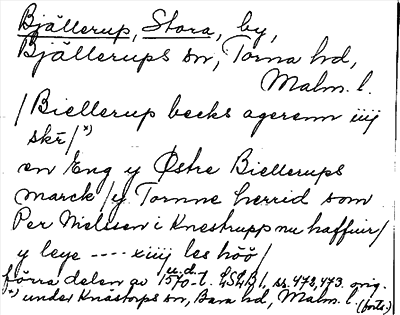 Bjällerup, Stora, by,
Bjällerups sn, Torna hd,
Malm. l.
/Biellerup becks ageren iiij
skr/*)
en Eng y Østre Biellerups
marck /y Tornne herrid som
Per Nielssen i Knestrupp nu haffuer/
y leye ---- xiiij les höö/
u.d.
förra delen av 1570-t. LSLB1, ss. 472, 473. orig.
*) under Knästorps sn, Bara hd, Malm. l. (forts.)